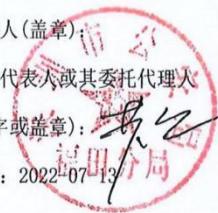 人(盖章):
代表人或其委托代理人
字或盖章):
: 2022-07-13
市公
分局